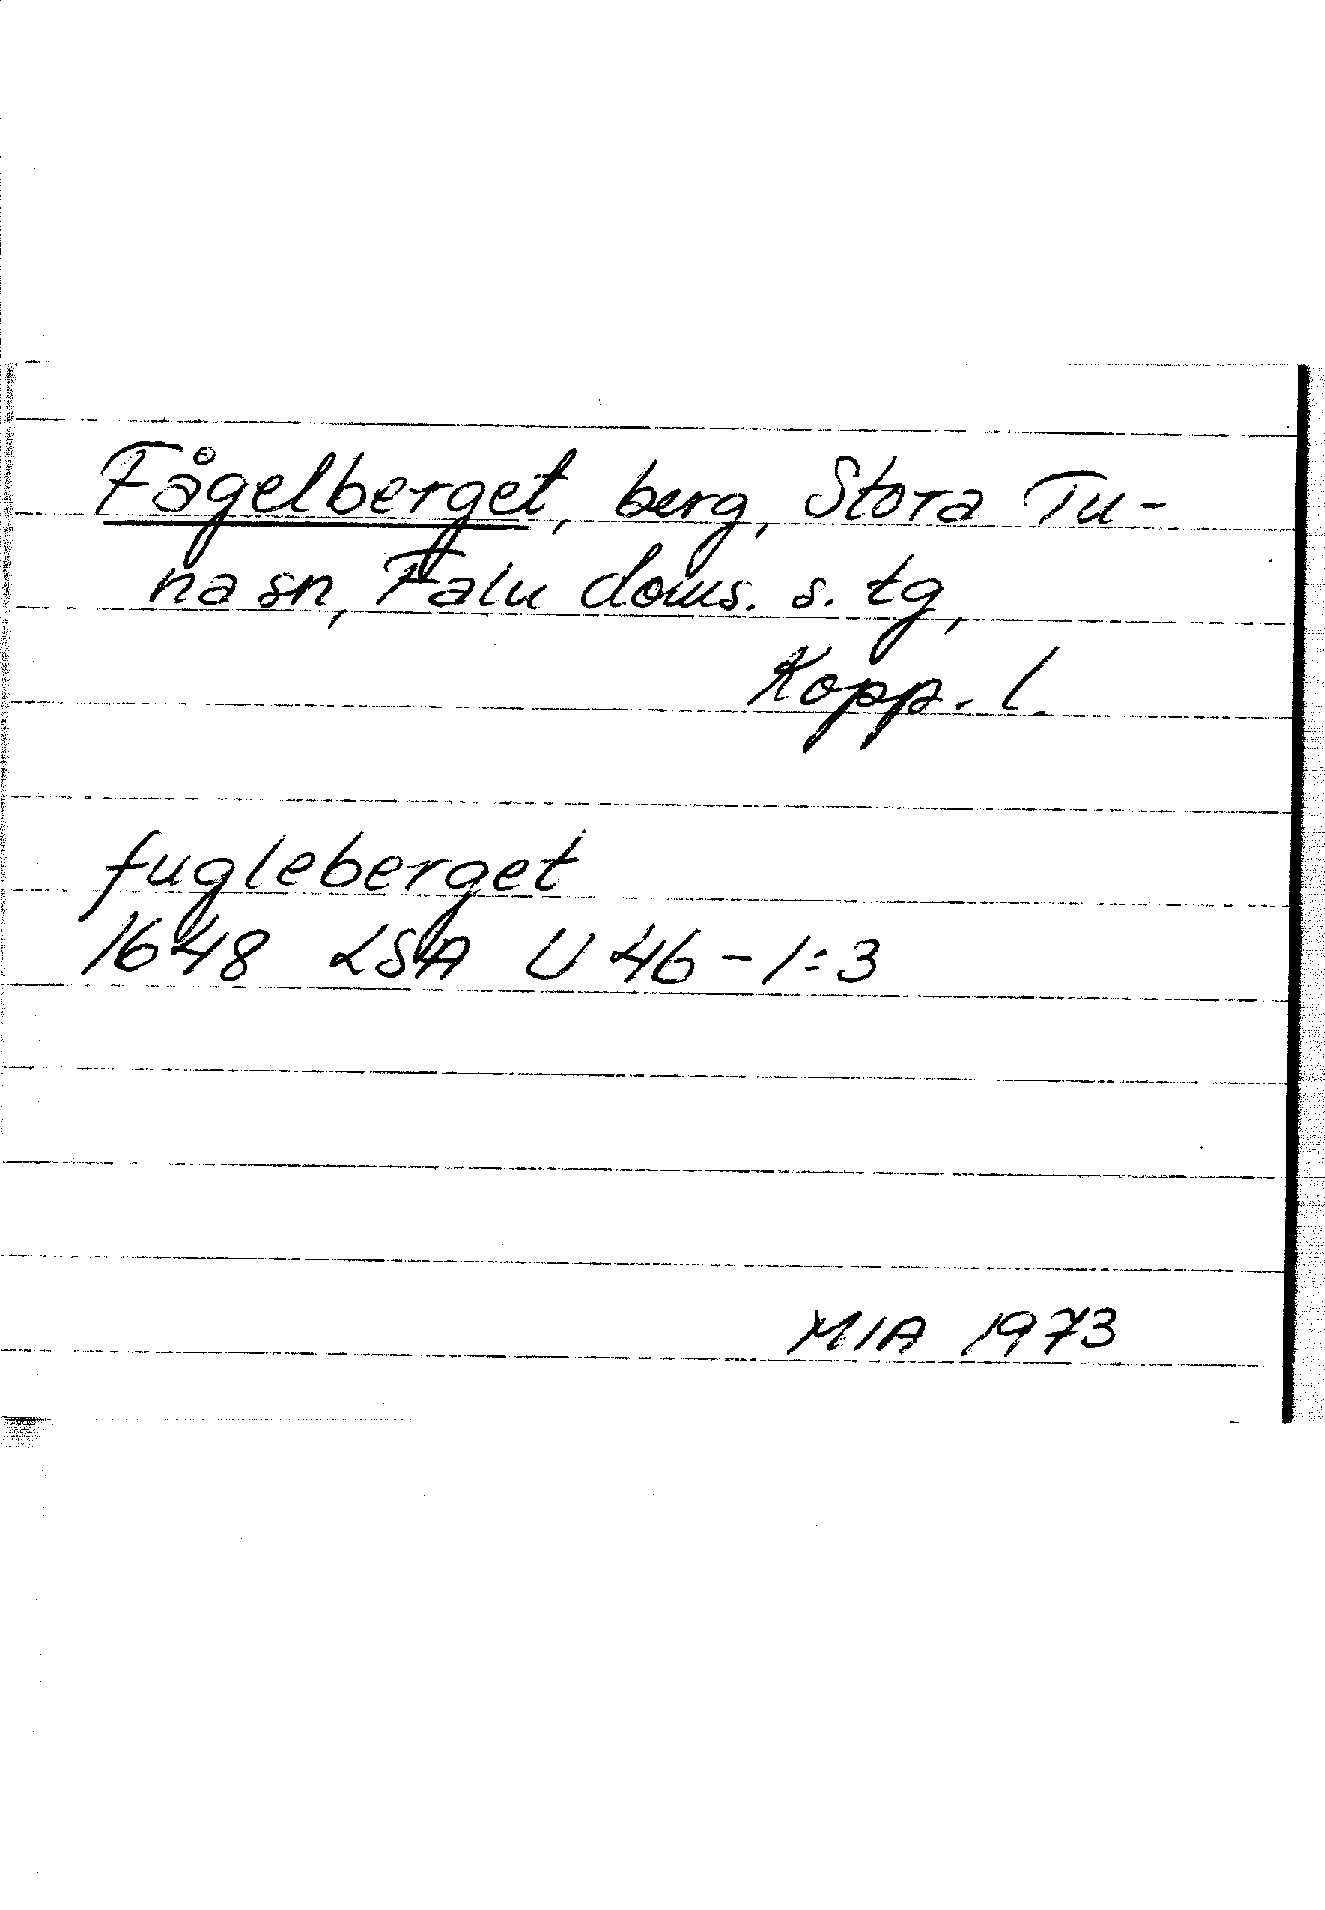 Fågelberget, berg, Stora Tu-
na sn, Falu doms. s. tg,
Kopp. l.
fugleberget
1648 LSA U 46-1:3
MIA 1973